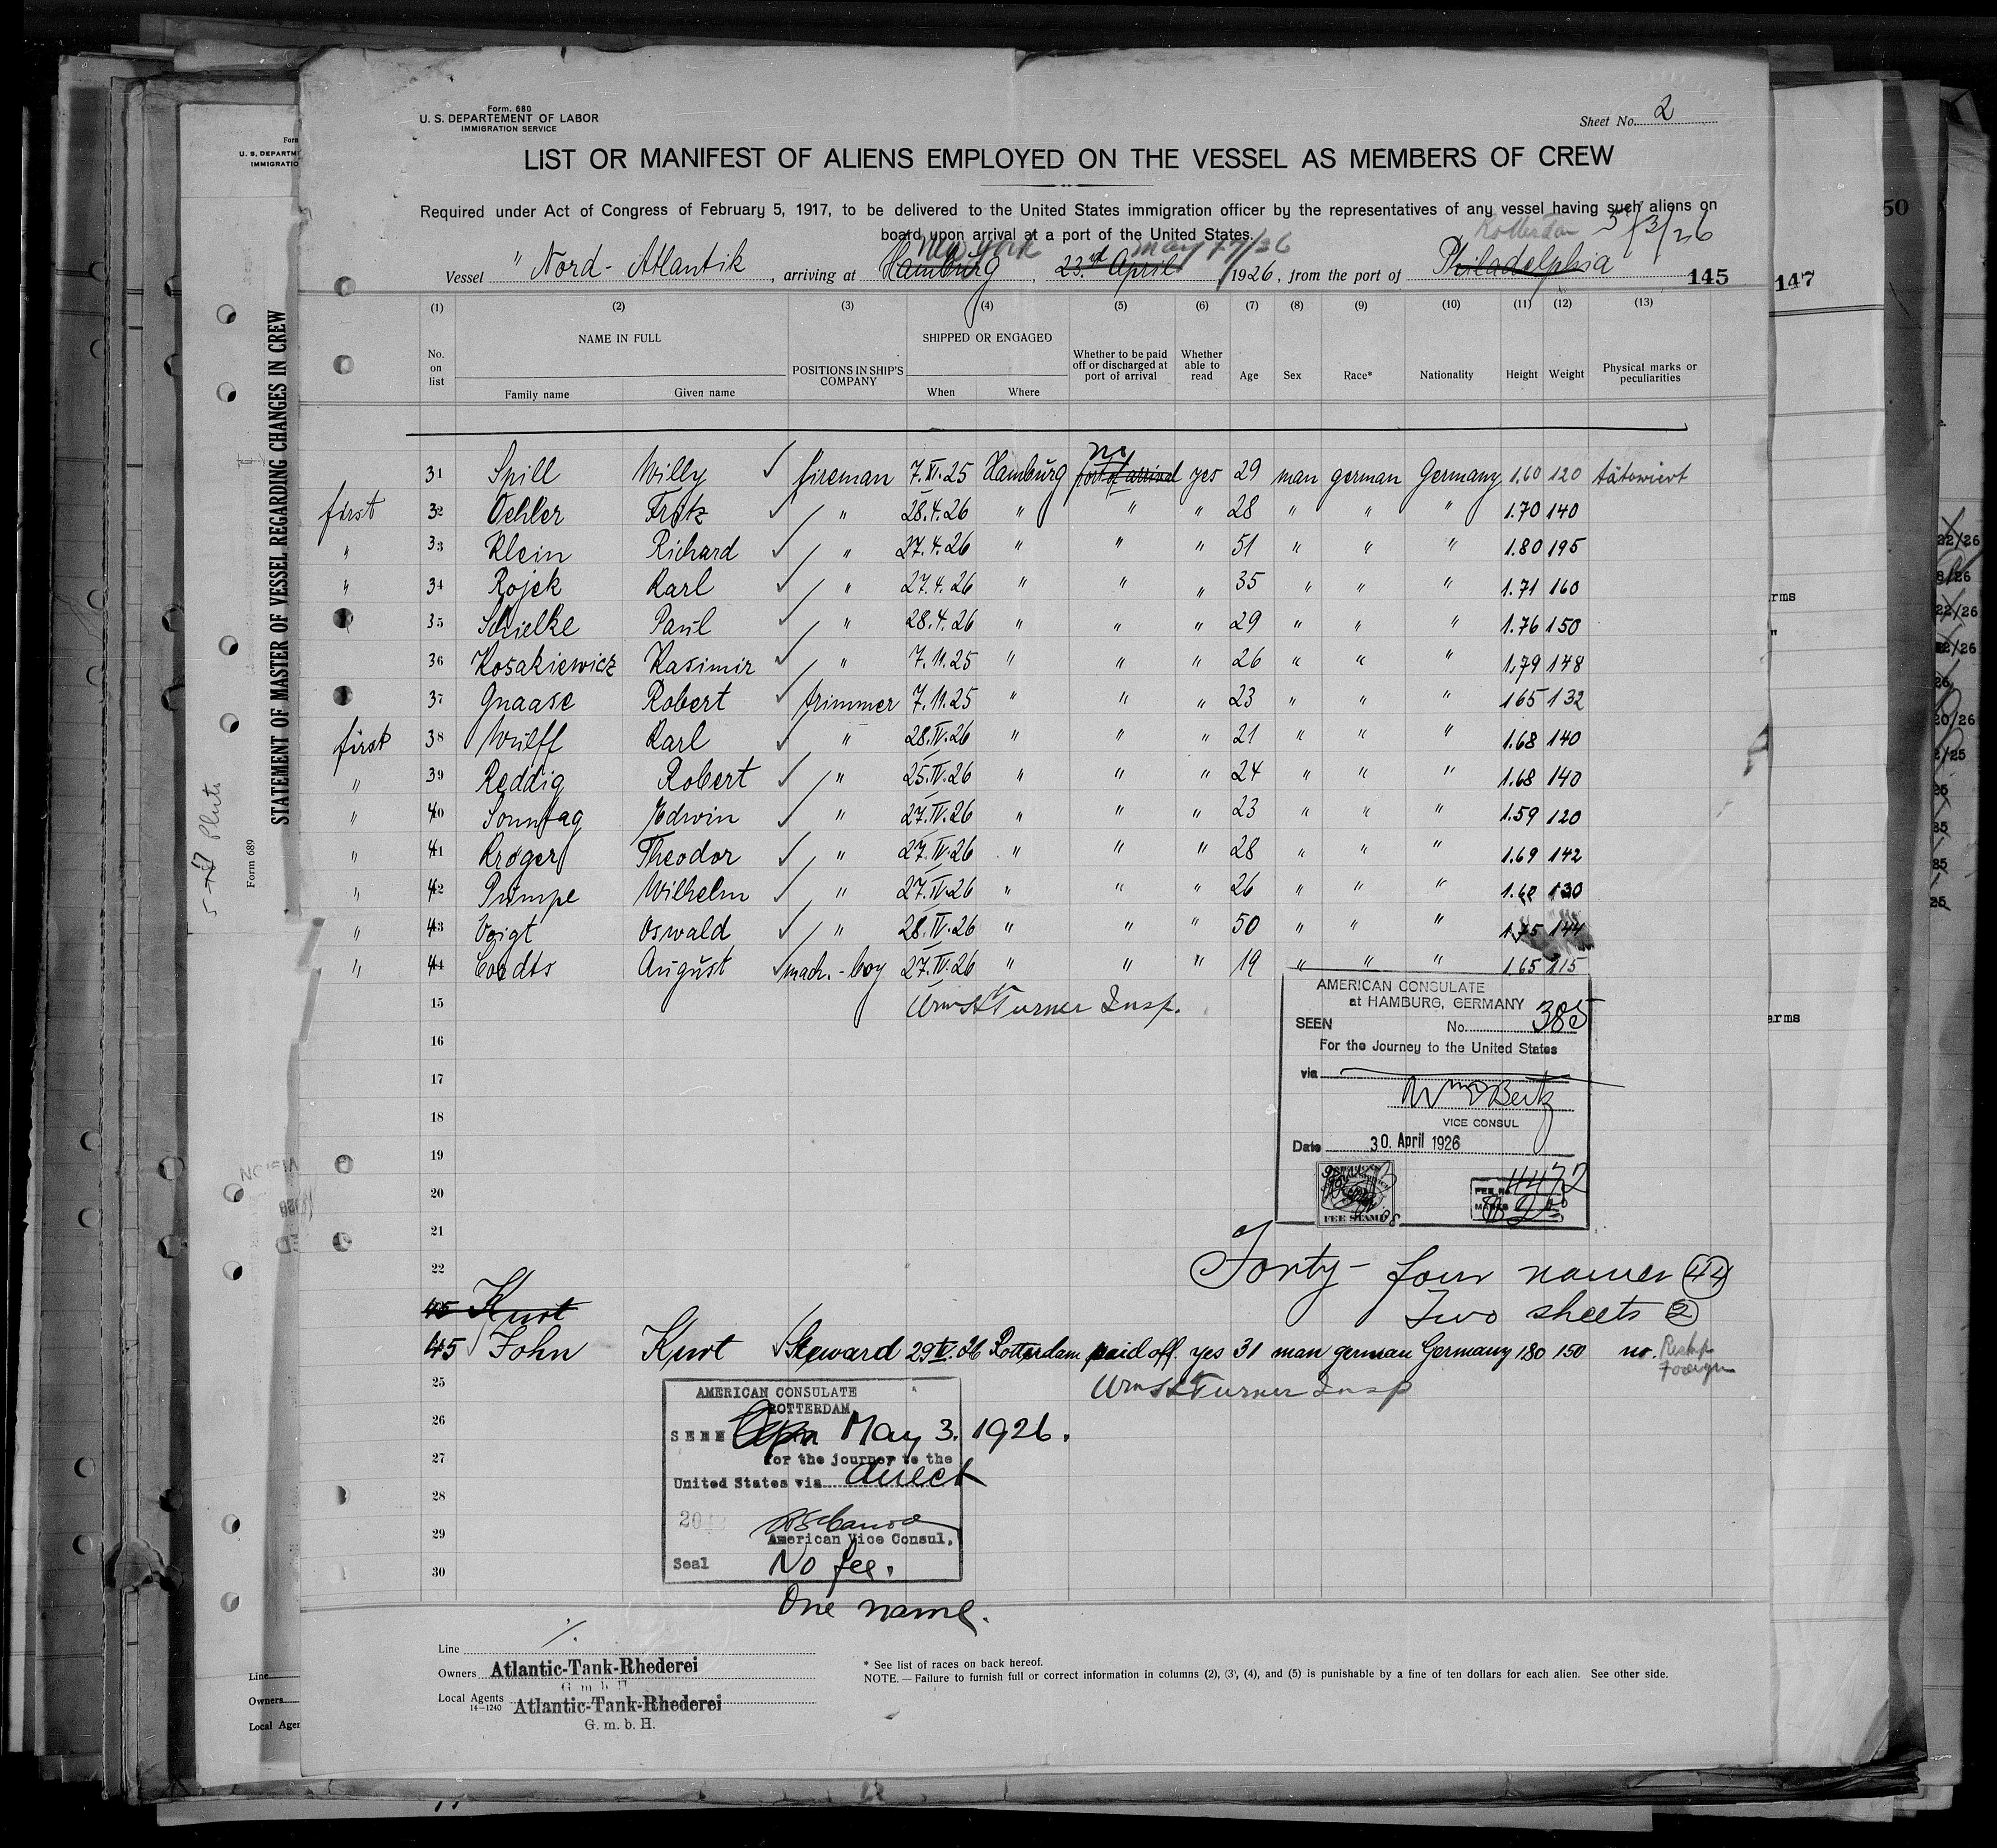 Form. 680
U. S. DEPARTEMENT OF LABOR
IMMIGRATION SERVICE
Sheet No. 2
LIST OR MANIFEST OF ALIENS EMPLOYED ON THE VESSEL AS MEMBERS OF CREW
Required under Act of Congress of February 5, 1917, to be delivered to the United States immigration officer by the representatives of any vessel having such aliens on
board upon arrival at a port of the United States.
New York May 17/26 Rotterdam 5/3/26
Vessel "Nord-Atlantik, arriving at Hamburg, 23rd April 1926, from the port of Philadelphia 145
(1) (2) (3) (4) (5) (6) (7) (8) (9) (10) (11) (12) (13)
No. on list NAME IN FULL Family name Given name POSITIONS IN SHIP'S COMPANY SHIPPED OR ENGAGED When Where Whether to be paid off or discharged at port of arrival Whether able to read Age Sex Race* Nationality Height Weight Physical marks or peculiarities
no
31 Spill Willy fireman 7.XI.25 Hamburg port of arrival yes 29 man german Germany 1.60 120 tätowiert
first 32 Oehler Fritz " 28.4.26 " " " 28 " " " 1.70 140
" 33 Klein Richard " 27.4.26 " " " 51 " " " 1.80 195
" 34 Rojek Karl " 27.4.26 " " " 35 " " " 1.71 160
35 Schielke Paul " 28.4.26 " " " 29 " " " 1.76 150
36 Kosakiewicz Kasimir " 7.11.25 " " " 26 " " " 1.79 148
37 Gnaase Robert trimmer 7.11.25 " " " 23 " " " 165 132
first 38 Wulff Karl " 28.IV.26 " " " 21 " " " 1.68 140
" 39 Reddig Robert " 25.IV.26 " " " 24 " " " 1.68 140
" 40 Sonntag Edwin " 27.IV.26 " " " 23 " " " 1.59 120
" 41 Kröger Theodor " 27.IV.26 " " " 28 " " " 1.69 142
" 42 Pumpe Wilhelm " 27.IV.26 " " " 26 " " " 1.68 130
" 43 Voigt Oswald " 28.IV.26 " " " 50 " " " 1.75 144
" 44 Cordts August mach.-boy 27.IV.26 " " " 19 " " " 1.65 115
15 Wm H Turner Insp.
16
17
18
19
20
21
22
AMERICAN CONSULATE
at HAMBURG, GERMANY
SEEN No. 385
For the Journey to the United States
via
Wm Beitz
VICE CONSUL
Date 30. April 1926
FEE STAMP
FEE No. 4472
MARKS
Forty-four names 44
Two sheets 2
45 Kurt
45 John Kurt Steward 29.IV.26 Rotterdam paid off yes 31 man german Germany 180 150 no.
Foreign
25 Wm H Turner Insp
26
27
28
29
30
AMERICAN CONSULATE
ROTTERDAM
SEEN May 3. 1926.
for the journey to the
United States via direct
American Vice Consul.
Seal No fee.
One name.
Line
Owners Atlantic-Tank-Rhederei
G. m. b. H.
Local Agents Atlantic-Tank-Rhederei
14-1240
G. m. b. H.
* See list of races on back hereof.
NOTE. — Failure to furnish full or correct information in columns (2), (3), (4), and (5) is punishable by a fine of ten dollars for each alien. See other side.
STATEMENT OF MASTER OF VESSEL REGARDING CHANGES IN CREW
Form 689
U. S. DEPARTM
IMMIGRATIO
Line
Owners
Local Agen
147
50
rms
arms